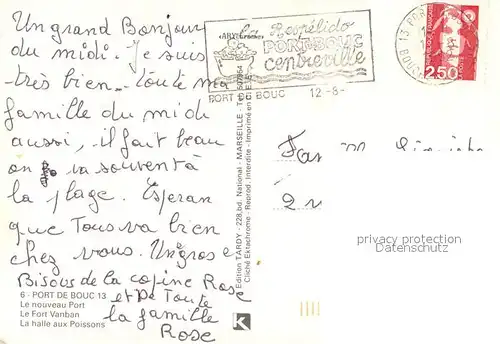 Un grand Bonjour
du midi. Je suis
très bien. Toute ma
famille du midi
aussi, il fait beau
on va souvent à
la plage. Esperan
que Tous va bien
chez vous. Un gros
Bisous de la copine Rose
et de Toute
la famille
Rose
6 - PORT DE BOUC 13
Le nouveau Port
Le Fort Vanban
La halle aux Poissons
Edition TARDY - 228, bd. National - MARSEILLE
Cliché Ektachrome - Reprod. interdite - Imprimé en
K
PORT-DE-BOUC
centre ville
PORT DE BOUC 12-8-
13 PORT
BOUC
REPUBLIQUE FRANÇAISE
2,50
Fam
privacy protection
Datenschutz